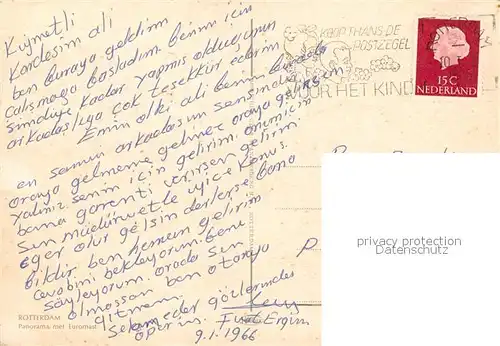 Kıymetli
Kardeşim ali
ben buraya geldim
çalışmaya başladım benim için
şimdiye kadar yapmış olduğunun
arkadaşlıya çok teşekkür ederim
Emin olki ali benim burada
en samin arkadaşım sensindir
oraya gelmeme gelince oraya gelirsem
yalınız senin için gelirim. onun için
bana garenti verirsen gelirim.
Sen müdürwetle iyice konuş.
eger olur gelsin derlerse bana
bildir ben hemen gelirim
cevabini bekleyorum. beni
söyleyorum. orada sen
olmassan ben oraya
gitmem.
Selam eder gözlerinden
öperim.
Fuat Ergin
9.1.1966
KOOPT THANS DE
POSTZEGEL
VOOR HET KIND
10
15 C
NEDERLAND
ROTTERDAM
Panorama met Euromast
privacy protection
Datenschutz